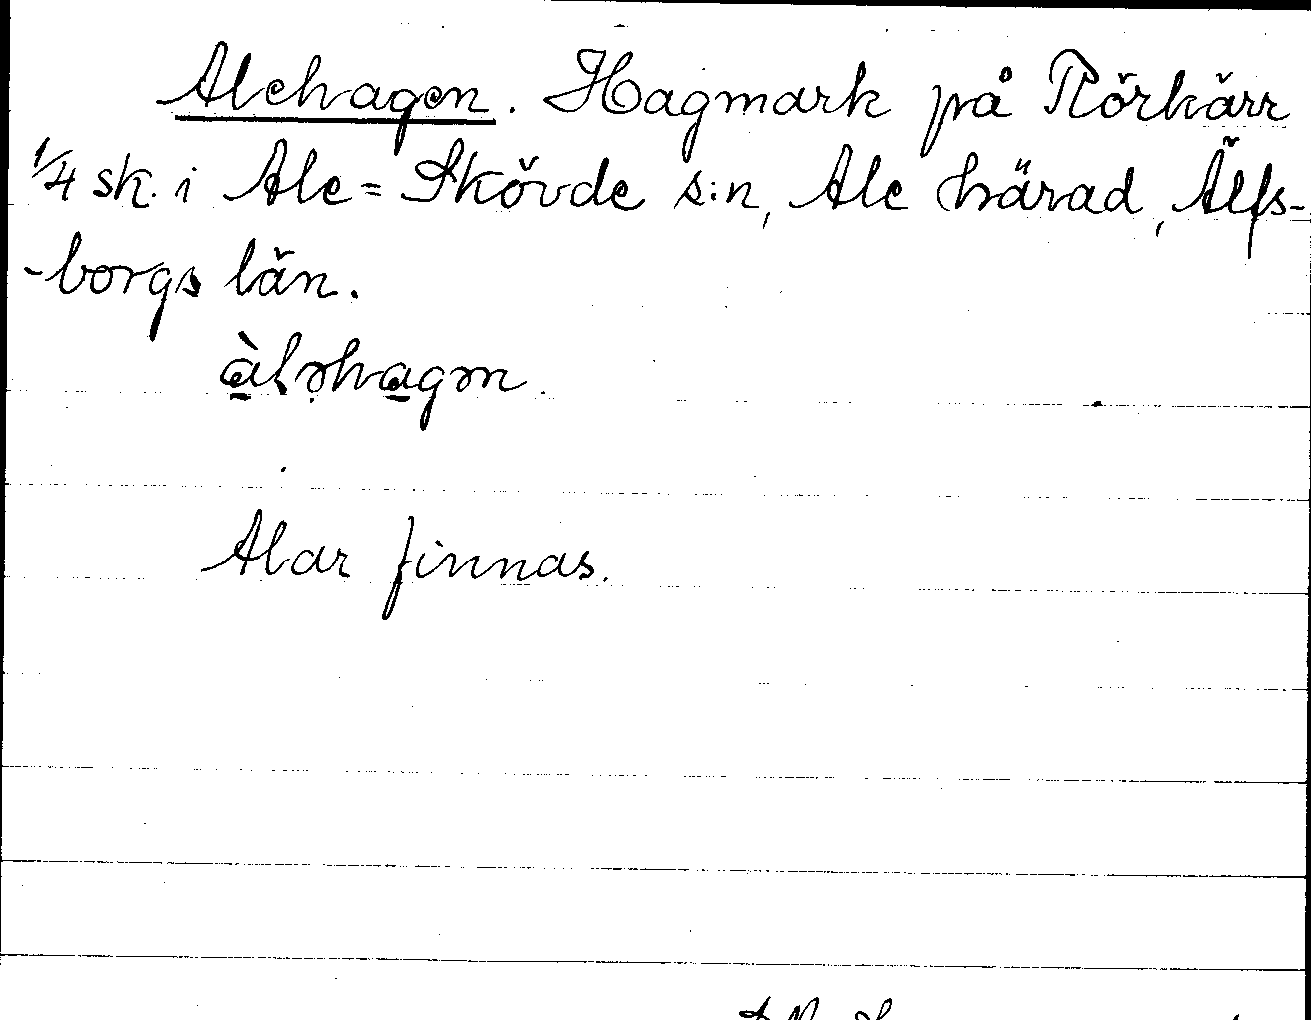 Alehagen. Hagmark på Rörkärr
1/4 sk. i Ale=Skövde s:n, Ale härad, Älfs-
-borgs län.
àləhagən.
Alar finnas.